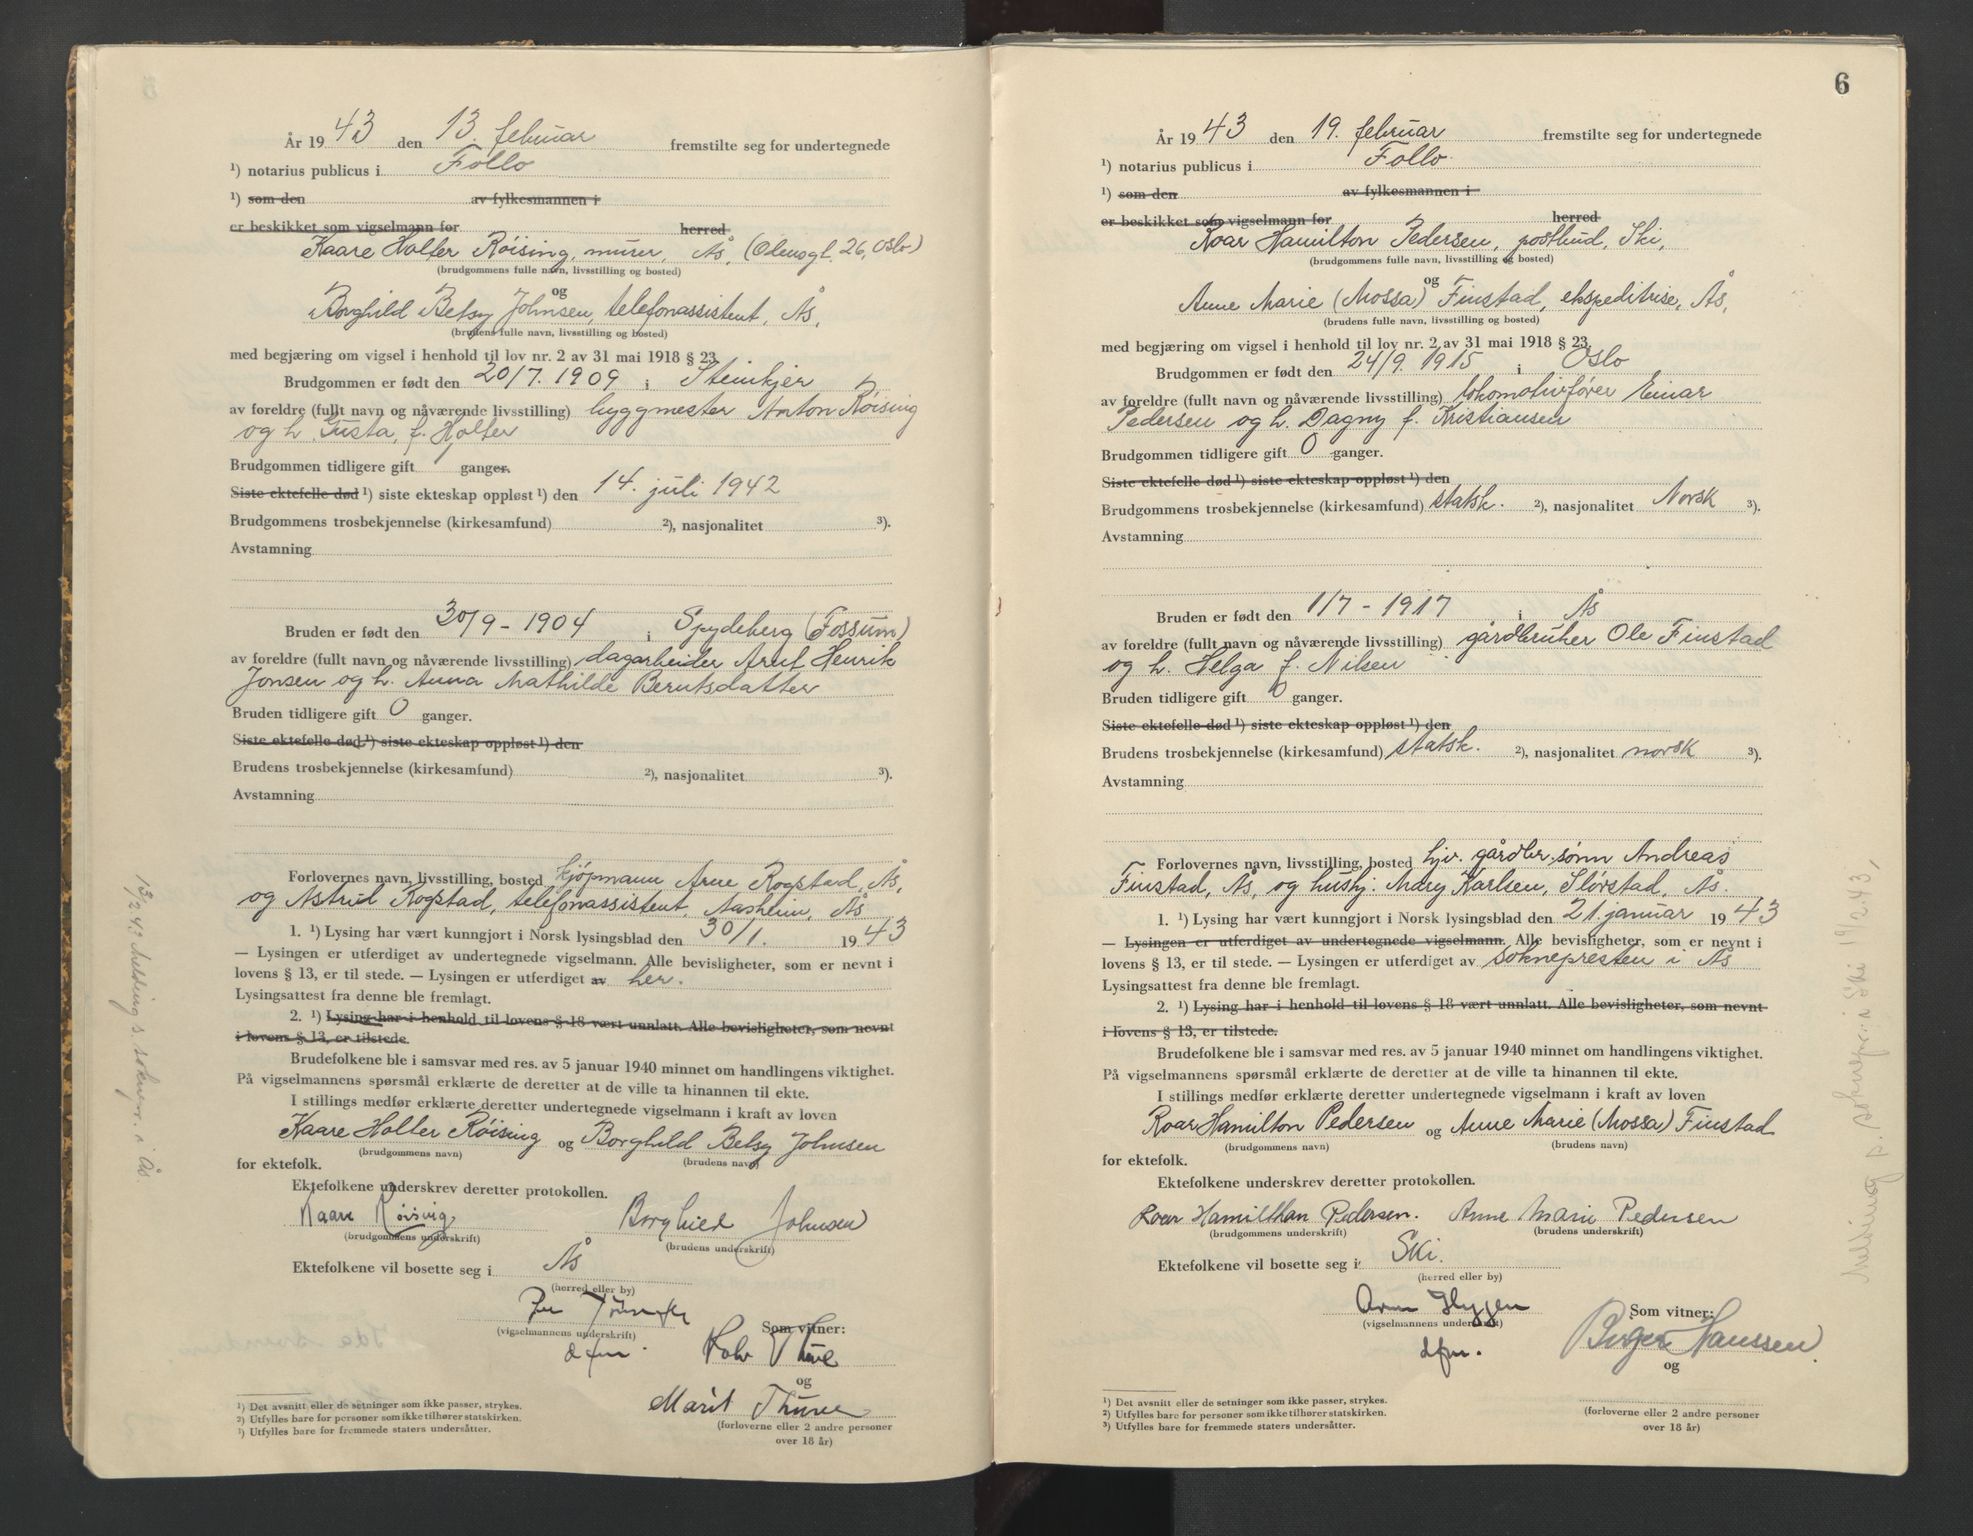 År 1943 den 13. februar fremstilte seg for undertegnede
¹) notarius publicus i Follo
¹) som den av fylkesmannen i
er beskikket som vigselmann for herred
Kaare Holter Röising, murer, Ås, (Odensgt. 26, Oslo)
(brudgommens fulle navn, livsstilling og bosted)
og
Borghild Betsy Johnsen, telefonassistent, Ås,
(brudens fulle navn, livsstilling og bosted)
med begjæring om vigsel i henhold til lov nr. 2 av 31 mai 1918 § 23.
Brudgommen er født den 20/7. 1909 i Steinkjer
av foreldre (fullt navn og nåværende livsstilling) byggmester Anton Röising
og h. Gusta, f. Holter
Brudgommen tidligere gift 1 ganger.
Siste ektefelle død ¹) siste ekteskap oppløst ¹) den 14. juli 1942
Brudgommens trosbekjennelse (kirkesamfund) ²), nasjonalitet ³).
Avstamning
Bruden er født den 30/9 - 1904 i Spydeberg (Fossum)
av foreldre (fullt navn og nåværende livsstilling) dagarbeider Arnt Henrik
Jonsen og h. Anna Mathilde Berntsdatter
Bruden tidligere gift 0 ganger.
Siste ektefelle død ¹) siste ekteskap oppløst ¹) den
Brudens trosbekjennelse (kirkesamfund) ²), nasjonalitet ³).
Avstamning
Forlovernes navn, livsstilling, bosted kjöpmann Arne Rogstad, Ås,
og Astrid Rogstad, telefonassistent, Aasheim, Ås
1. ¹) Lysing har vært kunngjort i Norsk lysingsblad den 30/1. 1943
— Lysingen er utferdiget av undertegnede vigselmann. Alle bevisligheter, som er nevnt i
lovens § 13, er til stede. — Lysingen er utferdiget av her.
Lysingsattest fra denne ble fremlagt.
2. ¹) Lysing har i henhold til lovens § 18 vært unnlatt. Alle bevisligheter, som nevnt
i lovens § 13, er tilstede.
Brudefolkene ble i samsvar med res. av 5 januar 1940 minnet om handlingens viktighet.
På vigselmannens spørsmål erklærte de deretter at de ville ta hinannen til ekte.
I stillings medfør erklærte deretter undertegnede vigselmann i kraft av loven
Kaare Holter Röising og Borghild Betsy Johnsen
(brudgommens navn) (brudens navn)
for ektefolk.
Ektefolkene underskrev deretter protokollen.
Kaare Röising Borghild Johnsen
(brudgommens underskrift) (brudens underskrift)
Ektefolkene vil bosette seg i Ås
(herred eller by)
(vigselmannens underskrift) Som vitner:
dfm.
og
Marit Thune
(forloverne eller 2 andre personer
over 18 år)
¹) Det avsnitt eller de setninger som ikke passer, strykes.
²) Utfylles bare for personer som ikke tilhører statskirken.
³) Utfylles bare for fremmede staters undersåtter.
13/2 43 Melding s. soknepr. i Ås.
6
År 1943 den 19. februar fremstilte seg for undertegnede
¹) notarius publicus i Follo.
¹) som den av fylkesmannen i
er beskikket som vigselmann for herred
Roar Hamilton Pedersen, postbud, Ski,
(brudgommens fulle navn, livsstilling og bosted)
og
Anne Marie (Mossa) Finstad, ekspeditrise, Ås,
(brudens fulle navn, livsstilling og bosted)
med begjæring om vigsel i henhold til lov nr. 2 av 31 mai 1918 § 23.
Brudgommen er født den 24/9. 1915 i Oslo
av foreldre (fullt navn og nåværende livsstilling) lokomotivfører Einar
Pedersen og h. Dagny f. Kristiansen
Brudgommen tidligere gift 0 ganger.
Siste ektefelle død ¹) siste ekteskap oppløst ¹) den
Brudgommens trosbekjennelse (kirkesamfund) statsk. ²), nasjonalitet Norsk ³).
Avstamning
Bruden er født den 1/7 - 1917 i Ås
av foreldre (fullt navn og nåværende livsstilling) gårdbruker Ole Finstad
og h. Helga f. Nilsen
Bruden tidligere gift 0 ganger.
Siste ektefelle død ¹) siste ekteskap oppløst ¹) den
Brudens trosbekjennelse (kirkesamfund) statsk. ²), nasjonalitet norsk ³).
Avstamning
Forlovernes navn, livsstilling, bosted hjv. gårdbr.sønn Andreas
Finstad, Ås, og hushj. Mary Karlsen, Slörstad, Ås.
1. ¹) Lysing har vært kunngjort i Norsk lysingsblad den 21. januar 1943
— Lysingen er utferdiget av undertegnede vigselmann. Alle bevisligheter, som er nevnt i
lovens § 13, er til stede. — Lysingen er utferdiget av soknepresten i Ås
Lysingsattest fra denne ble fremlagt.
2. ¹) Lysing har i henhold til lovens § 18 vært unnlatt. Alle bevisligheter, som nevnt
i lovens § 13, er tilstede.
Brudefolkene ble i samsvar med res. av 5 januar 1940 minnet om handlingens viktighet.
På vigselmannens spørsmål erklærte de deretter at de ville ta hinannen til ekte.
I stillings medfør erklærte deretter undertegnede vigselmann i kraft av loven
Roar Hamilton Pedersen og Anne Marie (Mossa) Finstad
(brudgommens navn) (brudens navn)
for ektefolk.
Ektefolkene underskrev deretter protokollen.
Roar Hamilthan Pedersen. Anne Marie Pedersen
(brudgommens underskrift) (brudens underskrift)
Ektefolkene vil bosette seg i Ski.
(herred eller by)
Arne Hygen Som vitner:
(vigselmannens underskrift) Birger Hanssen
dfm. og
(forloverne eller 2 andre personer
over 18 år)
¹) Det avsnitt eller de setninger som ikke passer, strykes.
²) Utfylles bare for personer som ikke tilhører statskirken.
³) Utfylles bare for fremmede staters undersåtter.
Melding s. soknepr. i Ski 19/2.43,